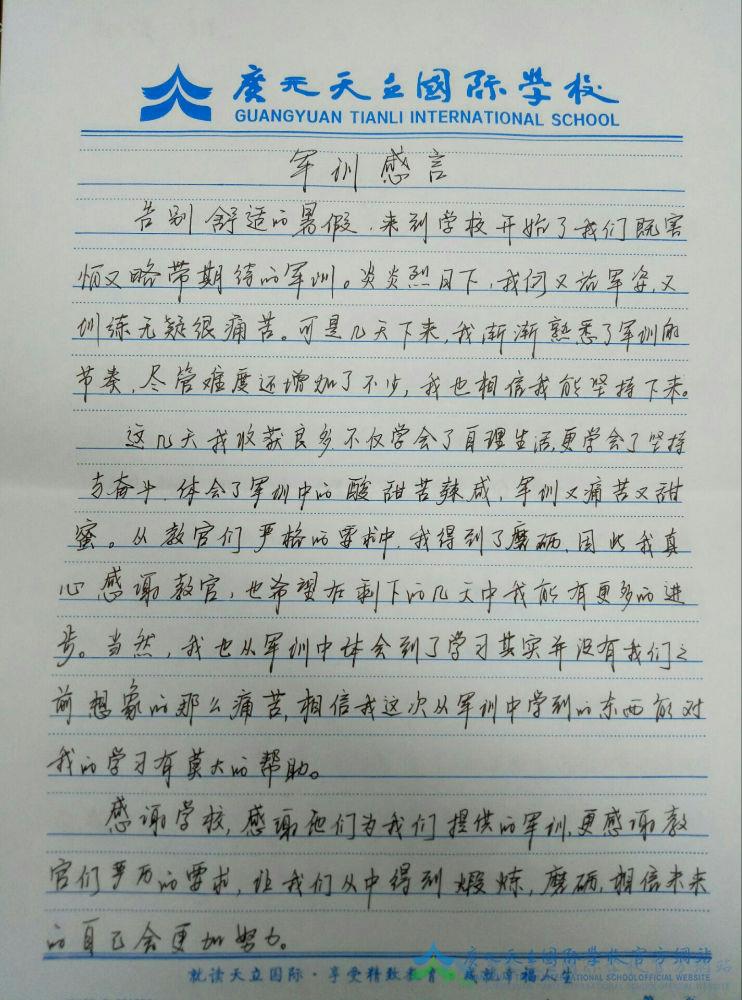 廣元天立國际学校
GUANGYUAN TIANLI INTERNATIONAL SCHOOL
军训感言
告别舒适的暑假,来到学校开始了我们既害
怕又略带期待的军训。炎炎烈日下,我们又站军姿,又
训练无疑很痛苦。可是几天下来,我渐渐熟悉了军训的
节奏,尽管难度还增加了不少,我也相信我能坚持下来。
这几天我收获良多不仅学会了自理生活,更学会了坚持
与奋斗,体会了军训中的酸甜苦辣咸,军训又痛苦又甜
蜜。从教官们严格的要求中,我得到了磨砺,因此我真
心感谢教官,也希望在剩下的几天中我能有更多的进
步。当然,我也从军训中体会到了学习其实并没有我们之
前想象的那么痛苦,相信我这次从军训中学到的东西能对
我的学习有莫大的帮助。
感谢学校,感谢他们为我们提供的军训,更感谢教
官们严厉的要求,让我们从中得到煅炼,磨砺,相信未来
的自己会更加努力。
廣元天立国际学校官方網站
TIANLI INTERNATIONAL SCHOOL OFFICIAL WEBSITE
就读天立国际·享受精致教育 成就幸福人生